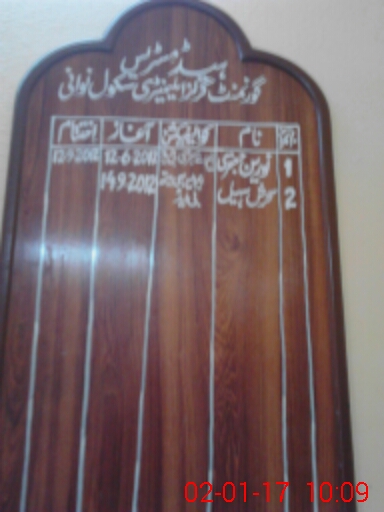 ہیڈ مسٹریس
گورنمنٹ گرلز ایلیمنٹری سکول نوانی
نمبر نام کوالیفیکیشن آغاز اختتام
1 نورین اختر 12-6 2012 13 9 2012
2 سحرش سہیل 14 9 2012
02-01-17 10:09